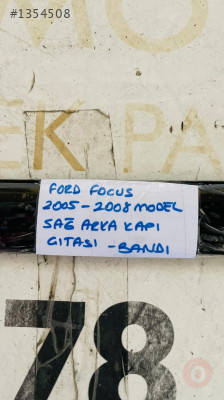 #1354508
K PA
FORD FOCUS
2005-2008 MODEL
SAĞ ARKA KAPI
CITASI -BANDI
78